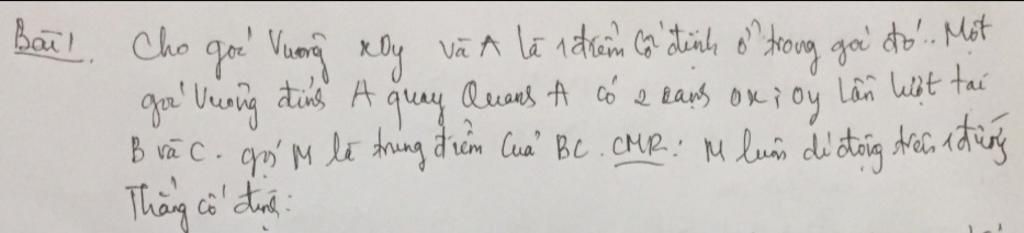 Bài 1. Cho góc vuông xOy và A là 1 điểm cố định ở trong góc đó.. Một
góc vuông đỉnh A quay quanh A có 2 cạnh Ox; Oy lần lượt tại
B và C. gọi M là trung điểm của BC. CMR: M luôn di động trên 1 đường
Thẳng cố định: